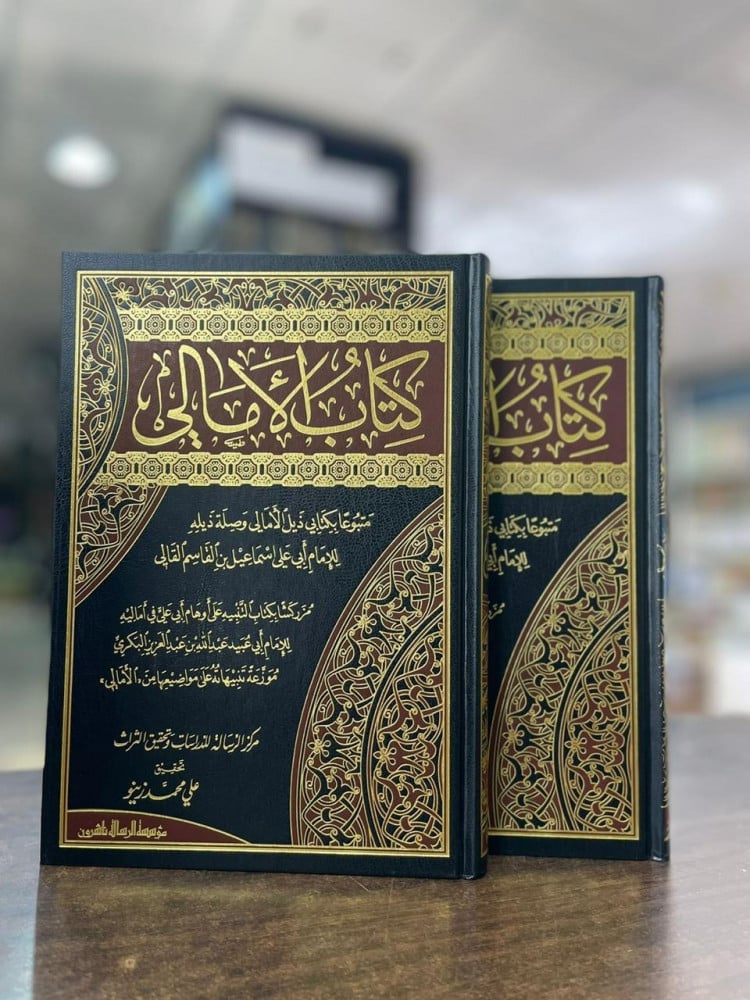 كِتَابُ الأَمَالِي
مَتْبُوعًا بِكِتَابَي ذَيْلِ الأَمَالِي وَصِلَةِ ذَيْلِهِ
لِلإِمَامِ أَبِي عَلِي إِسْمَاعِيل بن القَاسِم القَالِي
مُزَركَشًا بِكِتَابِ التَّنْبِيهِ عَلَى أَوهَامِ أَبِي عَلِيٍّ فِي أَمَالِيهِ
لِلإِمَامِ أَبِي عُبَيد عَبداللهِ بن عَبدالعَزيز البَكرِيِّ
مُوَزَّعَةً تَنْبِيهَاتُهُ عَلَى مَوَاضِيعِهَا مِنَ «الأَمَالِي»
مركز الرسالة للدراسات وتحقيق التراث
تحقيق
علي محمد زينو
مؤسسة الرسالة ناشرون
كِتَابُ
مَتْبُوعًا بِكِتَابَي
لِلإِمَامِ أَبِي